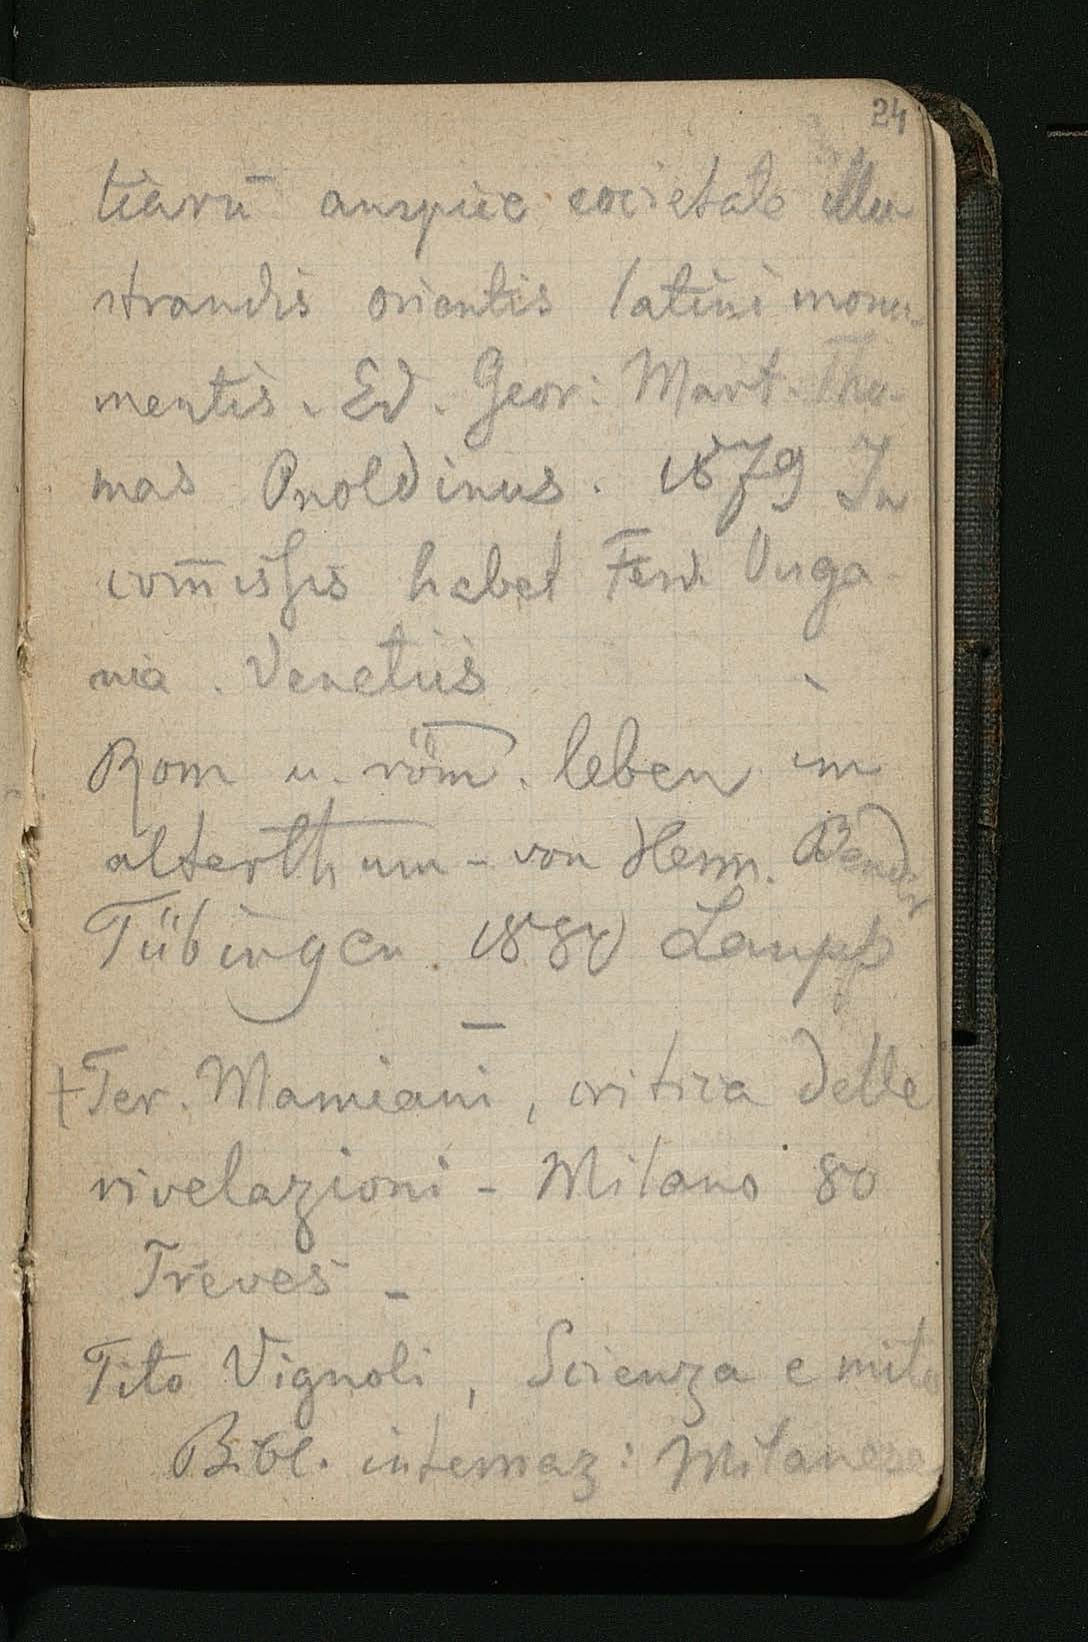 24
tiarū auspice societate illu
strandis orientis latini monu-
mentis. Ed. Geor: Mart. Tho-
mas Onoldinus. 1879 In
com̄issis habet Ferd. Onga-
nia. Venetiis
Rom u. röm. leben im
alterthum - von Herm. Bender
Tübingen 1880 Laupp
+ Ter. Mamiani, critica delle
rivelazioni - Milano 80
Treves -
Tito Vignoli, Scienza e mito
Bibl. internaz: Milanese